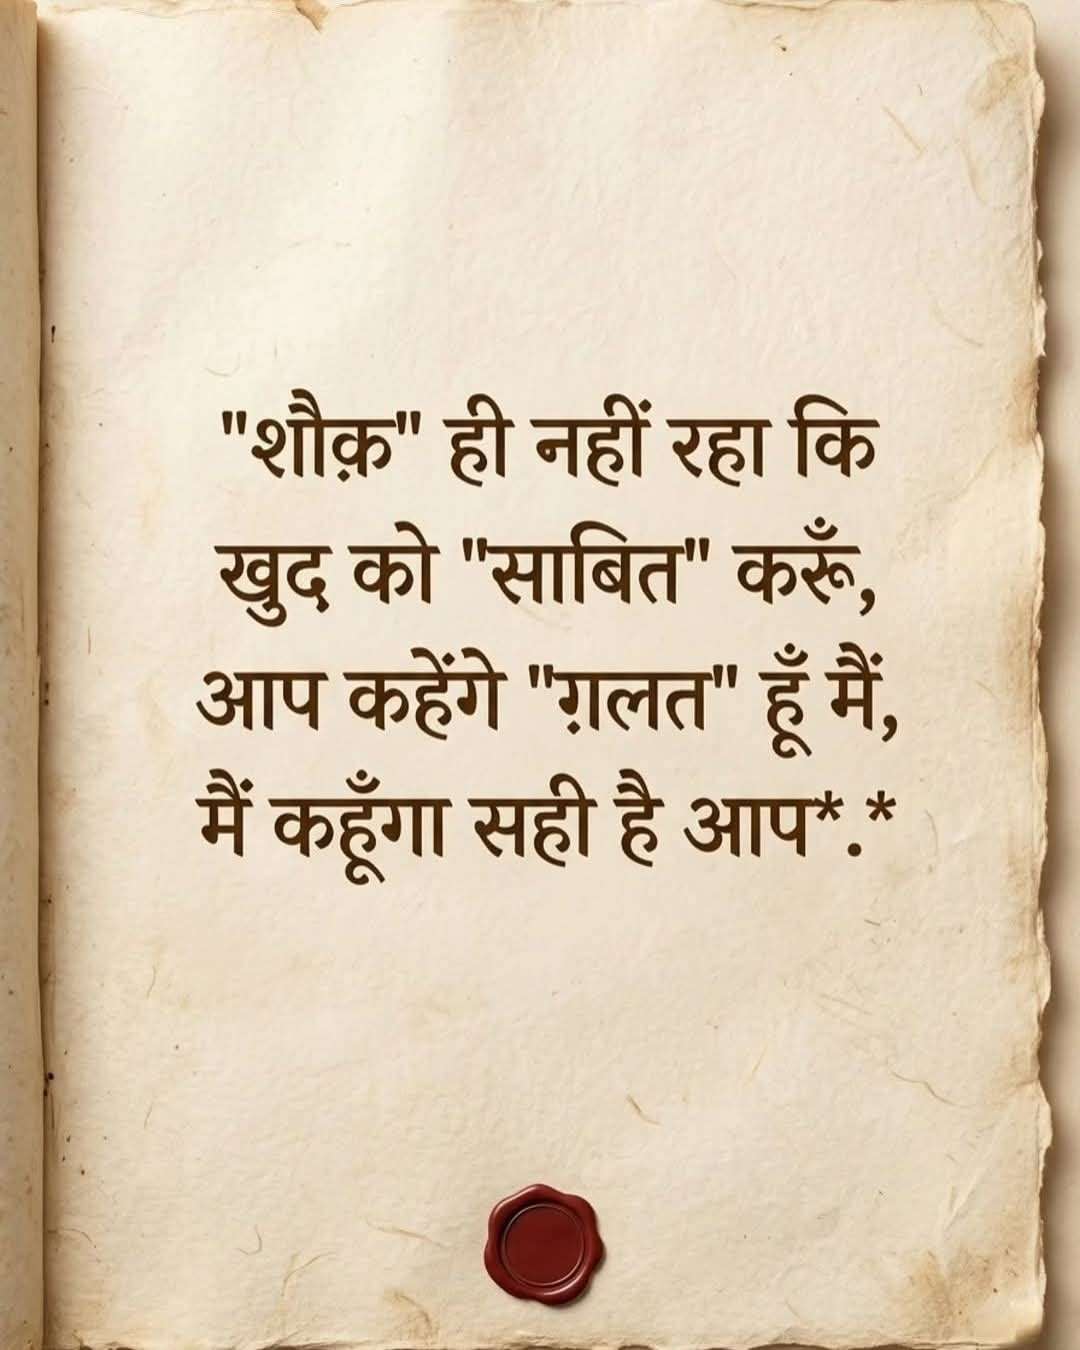 "शौक़" ही नहीं रहा कि
खुद को "साबित" करूँ,
आप कहेंगे "ग़लत" हूँ मैं,
मैं कहूँगा सही है आप*.*